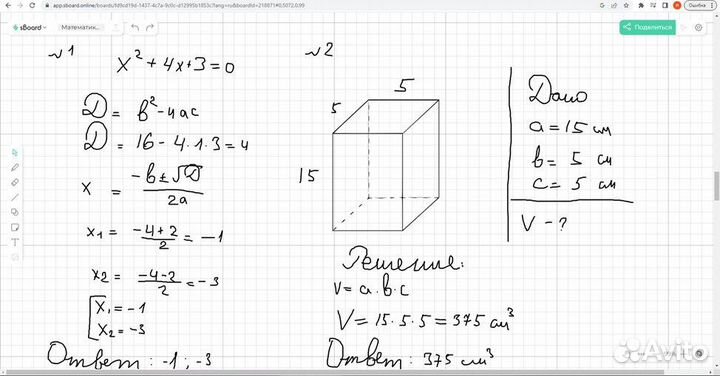 app.sboard.online/boards/fd9cd19d-1437-4c7a-9c0c-d12995b1853c?lang=ru&boardId=218871#0,5072,0.99
Ошибка
sBoard
Математик...
Поделиться
√1
x² + 4x + 3 = 0
D = b² - 4ac
D = 16 - 4 · 1 · 3 = 4
x = (-b ± √D) / 2a
x₁ = (-4 + 2) / 2 = -1
x₂ = (-4 - 2) / 2 = -3
[ x₁ = -1
x₂ = -3
Ответ: -1 ; -3
√2
5
5
15
Дано
a = 15 см
b = 5 см
c = 5 см
V - ?
Решение:
V = a · b · c
V = 15 · 5 · 5 = 375 см³
Ответ: 375 см³
Avito